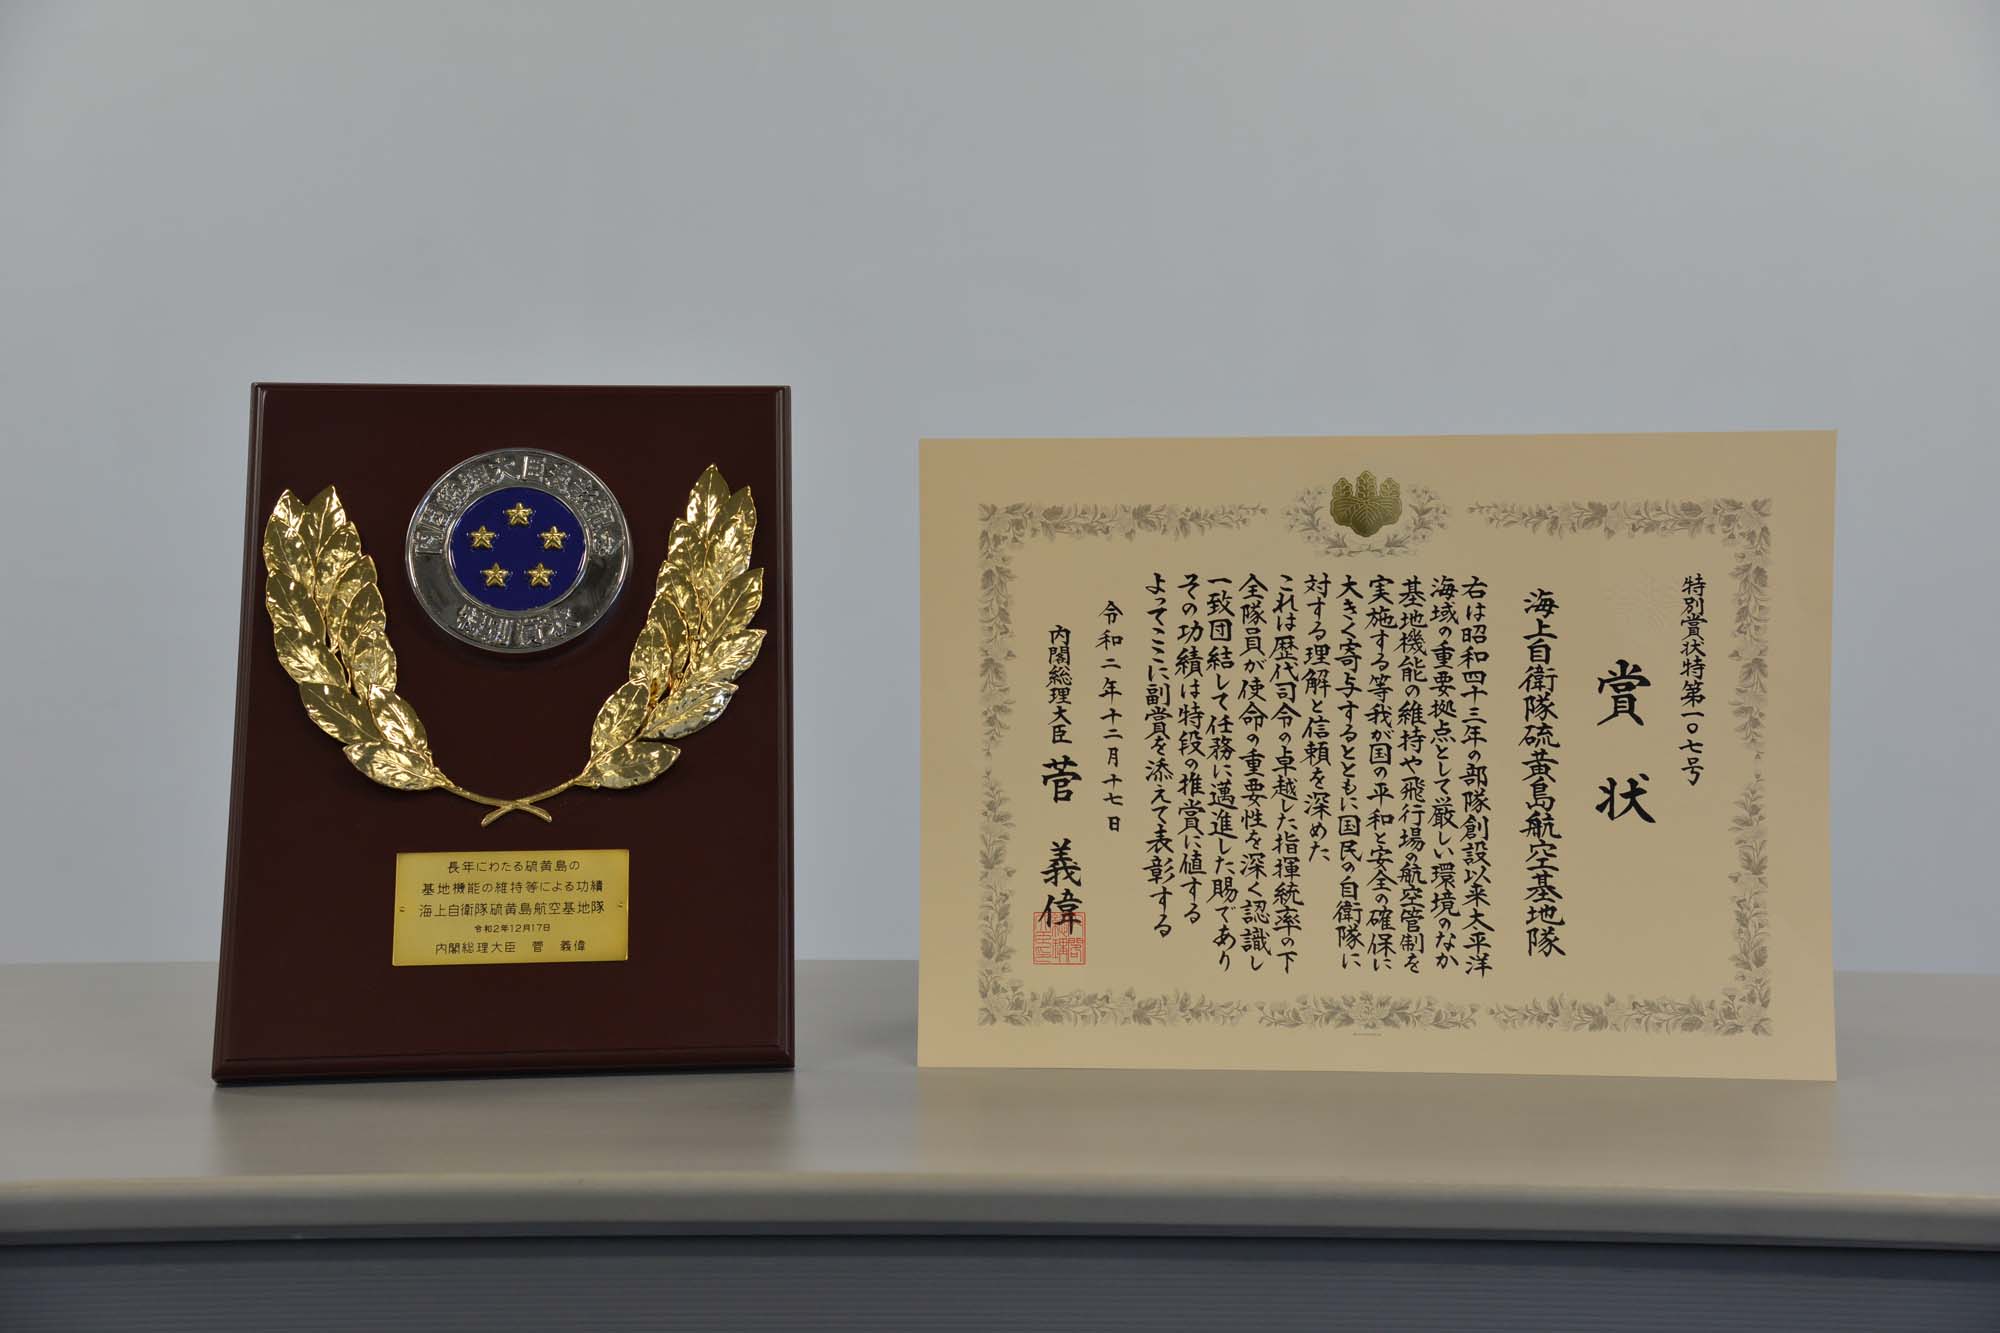 内閣総理大臣表彰
特別賞状
長年にわたる硫黄島の
基地機能の維持等による功績
海上自衛隊硫黄島航空基地隊
令和2年12月17日
内閣総理大臣　菅　義偉
特別賞状特第一〇七号
賞状
海上自衛隊硫黄島航空基地隊
右は昭和四十三年の部隊創設以来太平洋
海域の重要拠点として厳しい環境のなか
基地機能の維持や飛行場の航空管制を
実施する等我が国の平和と安全の確保に
大きく寄与するとともに国民の自衛隊に
対する理解と信頼を深めた
これは歴代司令の卓越した指揮統率の下
全隊員が使命の重要性を深く認識し
一致団結して任務に邁進した賜であり
その功績は特段の推賞に値する
よってここに副賞を添えて表彰する
令和二年十二月十七日
内閣総理大臣　菅　義偉